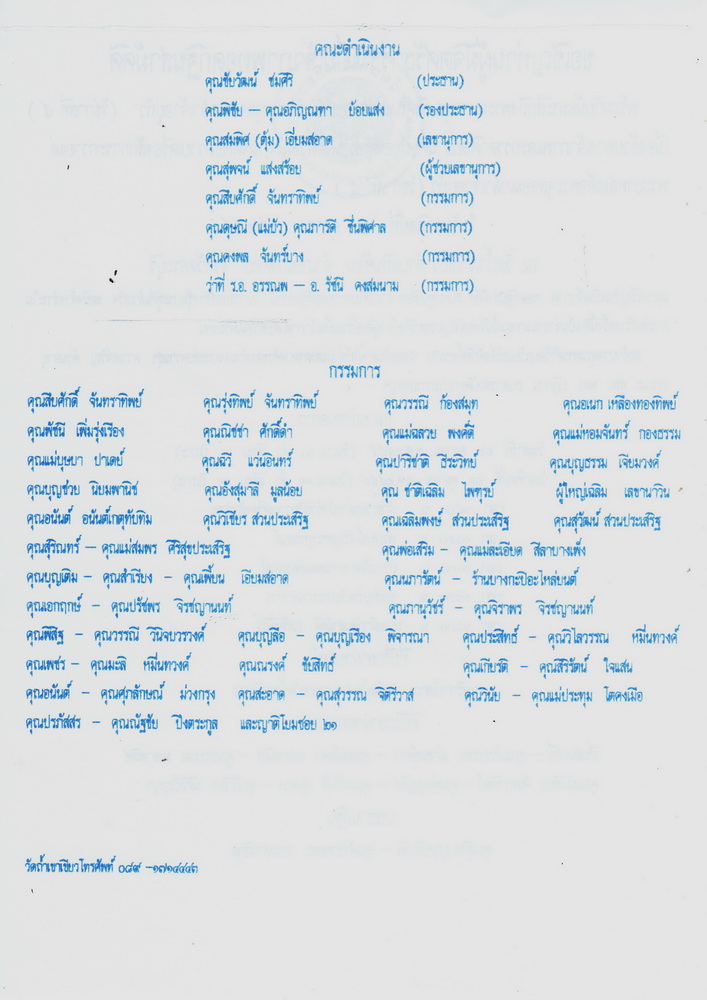 คณะดำเนินงาน
คุณชัยวัฒน์ ชมศิริ (ประธาน)
คุณพิชัย – คุณอภิญณฑา ย้อยแสง (รองประธาน)
คุณสมพิศ (ตุ้ม) เอี่ยมสอาด (เลขานุการ)
คุณสุพจน์ แสงสร้อย (ผู้ช่วยเลขานุการ)
คุณสืบศักดิ์ จันทราทิพย์ (กรรมการ)
คุณดุษณี (แม่บัว) คุณภารดี ชื่นพิศาล (กรรมการ)
คุณคงพล จันทร์บาง (กรรมการ)
ว่าที่ ร.อ. อรรณพ – อ. รัชนี คงสมนาม (กรรมการ)
กรรมการ
คุณสืบศักดิ์ จันทราทิพย์ คุณรุ่งทิพย์ จันทราทิพย์ คุณวรรณี ก้องสมุท คุณอเนก เหลืองทองทิพย์
คุณพัชนี เพิ่มรุ่งเรือง คุณณิชชา ศักดิ์ดำ คุณแม่ฉลวย พงศ์ดี คุณแม่หอมจันทร์ กองธรรม
คุณแม่บุษบา ปาเดย์ คุณฉวี แว่นอินทร์ คุณปาริชาติ ธีระวิทย์ คุณบุญธรรม เจียมวงค์
คุณบุญช่วย นิยมพานิช คุณอังสุมาลี มูลน้อย คุณ ชาติเฉลิม ไพทูรย์ ผู้ใหญ่เฉลิม เลขานาวิน
คุณอนันต์ อนันต์เกตุทับทิม คุณวิเชียร ส่วนประเสริฐ คุณเฉลิมพงษ์ ส่วนประเสริฐ คุณสุวัฒน์ ส่วนประเสริฐ
คุณสุรินทร์ – คุณแม่สมพร ศิริสุขประเสริฐ คุณพ่อเสริม – คุณแม่ละเอียด สีลาบางเพ็ง
คุณบุญเติม – คุณสำเรียง – คุณเพี้ยน เอี่ยมสอาด คุณนภารัตน์ – ร้านบางกะปิอะไหล่ยนต์
คุณเอกฤกษ์ – คุณปรัชพร จิรชญานนท์ คุณภานุวัชร์ – คุณจิราพร จิรชญานนท์
คุณพิสิฐ – คุณวรรณี วินิจบวรวงค์ คุณบุญลือ – คุณบุญเรือง พิจารณา คุณประสิทธ์ – คุณวิไลวรรณ หมื่นทวงค์
คุณเพชร – คุณมะลิ หมื่นทวงค์ คุณณรงค์ ชัยสิทธ์ คุณเกียรติ – คุณสิริรัตน์ ใจแสน
คุณอนันต์ – คุณศุภลักษณ์ ม่วงกรุง คุณสะอาด – คุณสุวรรณ จิตีวาส คุณวินัย – คุณแม่ประทุม โตดงเมือ
คุณปรภัสสร – คุณณัฐชัย ปิงตระกูล และญาติโยมซอย ๒๑
วัดถ้ำเขาเขียวโทรศัพท์ ๐๘๙ –๑๗๑๔๔๔๓